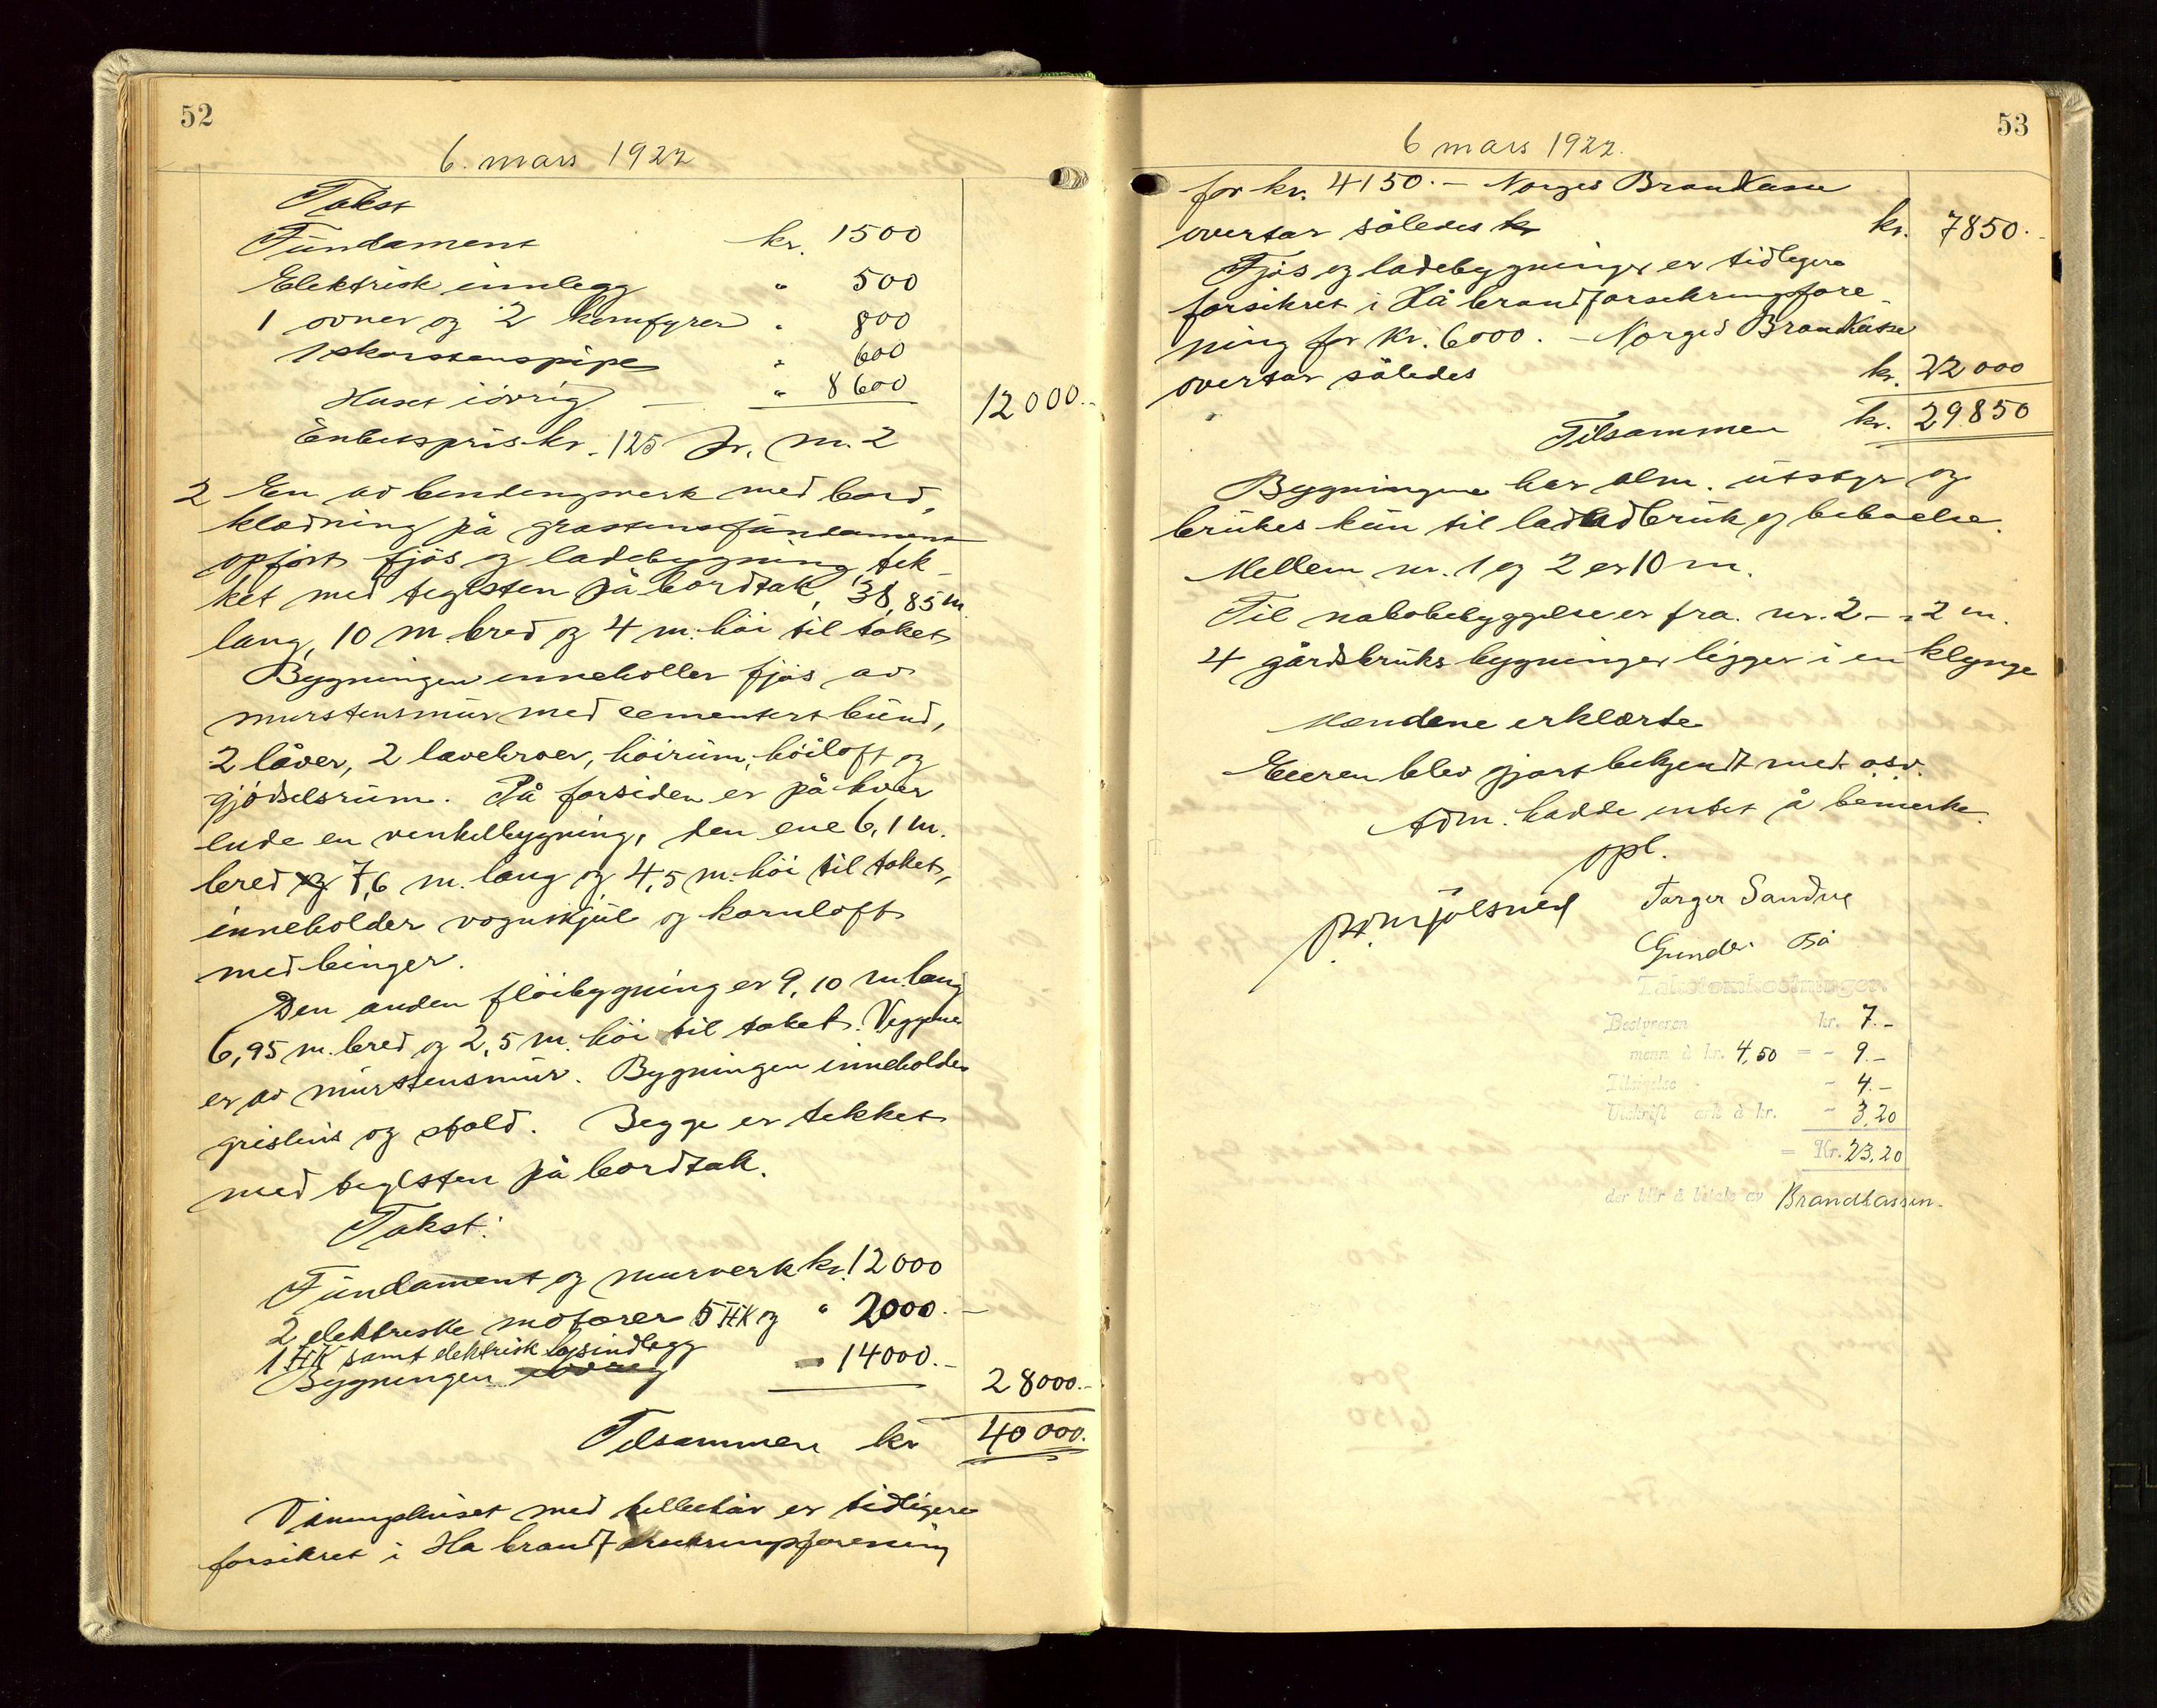 52
6. mars 1922
Takst
Fundament kr. 1500
Elektrisk innlegg " 500
1 ovner og 2 komfyrer " 800
1 skorstenspipe " 600
Huset iövrig — " 8600 12000.-
Enhetspris kr. 125 pr. m. 2
2 En av bindingsverk med bord,
klædning på grastensfundament
opfört fjös og ladebygning, tek-
ket med teglsten på bordtak, 38,85 m
lang, 10 m bred og 4 m. höi til taket
Bygningen inneholler fjös av
murstensmur med cementert bund,
2 låver, 2 lavebroer, höirum, höiloft og
gjödselsrum. På forsiden er på hver
ende en venkelbygning, den ene 6,1 m.
bred og 7,6 m. lang og 4,5 m. höi til taket,
inneholder vognskjul og kornloft
med binger.
Den anden flöibygning er 9,10 m. lang
6,95 m. bred og 2,5 m. höi til taket. Veggene
er av murstensmur. Bygningen inneholder
grishus og stald. Begge er tekket
med teglsten på bordtak.
Takst:
Fundament og murverk kr. 12000
2 elektriske motorer 5 HK og " 2000.-
1 HK samt elektrisk lysindlegg
Bygningen iövrig - 14000.- 28000.-
Tilsammen kr 40000.
Våningshuset med tilbehör er tidligere
forsikret i Ha brandforsikringsforening
53
6 mars 1922.
for kr. 4150.- Norges Brandkasse
overtar således kr kr. 7850.-
Fjös og ladebygninger er tidligere
forsikret i Hå brandforsikringsfore-
ning for kr. 6000. - Norges Brandkasse
overtar således kr. 22000
Tilsammen kr. 29.850
Bygningene har alm. utstyr og
brukes kun til landbruk og beboelse.
Mellem nr. 1 og 2 er 10 m.
Til nabobebyggelse er fra nr. 2 - 2 m.
4 gårdsbruks bygninger ligger i en klynge
Mændene erklærte
Eieren blev gjort bekjendt med osv.
Adm. hadde intet å bemerke.
opl.
Torger Sandve
Gunder Bö
Takstomkostninger
Bestyreren kr. 7.-
menn à kr. 4,50 = - 9.-
Tilsigelse - 4.-
Utskrift ark à kr. - 3,20
= Kr. 23,20
der blir å betale av Brandkassen.